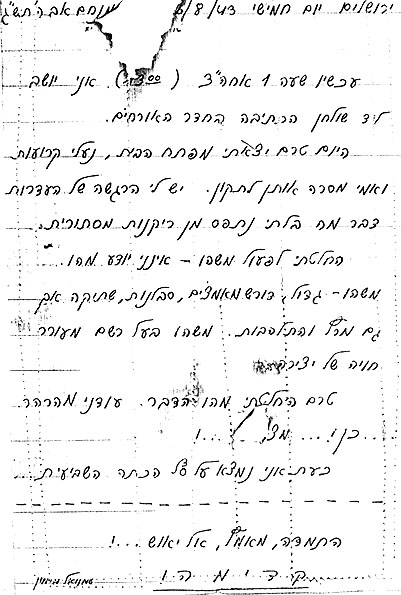 ירושלים יום חמישי 5/8/43 מנחם אב ה'תש"ג
עכשיו שעה 1 אחה"צ (1300). אני יושב
ליד שולחן הכתיבה בחדר האורחים.
היום טרם יצאתי מפתח הבית, נעלי קרועות
ואמי מסרה אותן לתקון. יש לי הרגשה של העדרות
דבר מה בלתי נתפס מן ריקנות מסתורית.
החלטתי לפעול משהו – אינני יודע מהו.
משהו – גדול, דורש מאמצים, סבלנות, שתיקה אך
גם מרץ והתלהבות. משהו בעל רשם מעורר
חויה של יצירה
טרם החלטתי מהו הדבר. עודני מהרהר
...כן! ... מצ. ....!
כעת אני נמצא על סף הכתה השביעית....
התמדה, מאמץ, אל יאוש...!
קדימה!